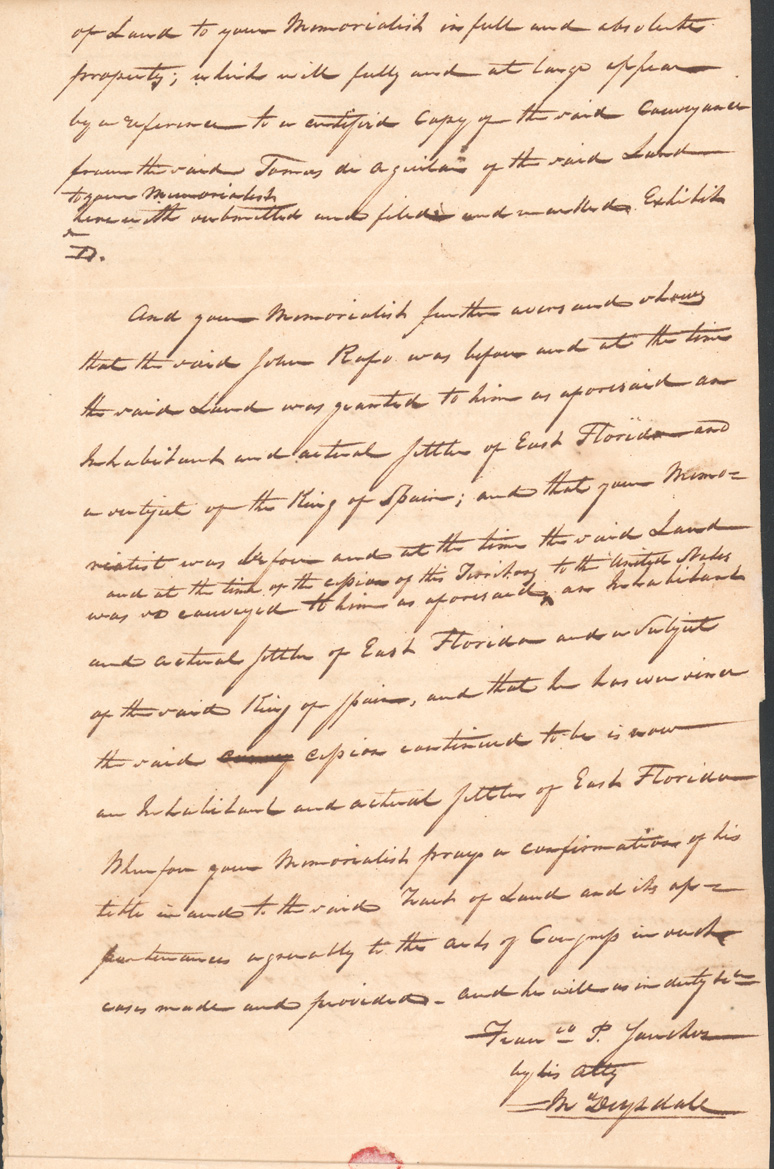 of Land to your Memorialist in full and absolute
property; which will fully and at large appear
by a reference to a certified Copy of the said Conveyance
from the said Tomas de Aguilar of the said Land
to your Memorialist
herewith submitted and filed and marked Exhibit
D.
And your Memorialist further avers and shows
that the said John was before and at the time
the said Land was granted to him as aforesaid an
Inhabitant and actual settler of East Florida and
a subject of the King of Spain; and that your Memo=
rialist was before and at the time the said Land
and at the time of the cession of this Territory to the United States
was so conveyed to him as aforesaid, an Inhabitant
and actual settler of East Florida and a Subject
of the said King of Spain, and that he has ever since
the said cession continued to be is now
an Inhabitant and actual settler of East Florida
Wherefore your Memorialist prays a confirmation of his
title in and to the said Tract of Land and its ap=
purtenances agreeably to the acts of Congress in such
cases made and provided - and he will as in duty &c
Franco P. Sanchez
by his Atty
Drysdale